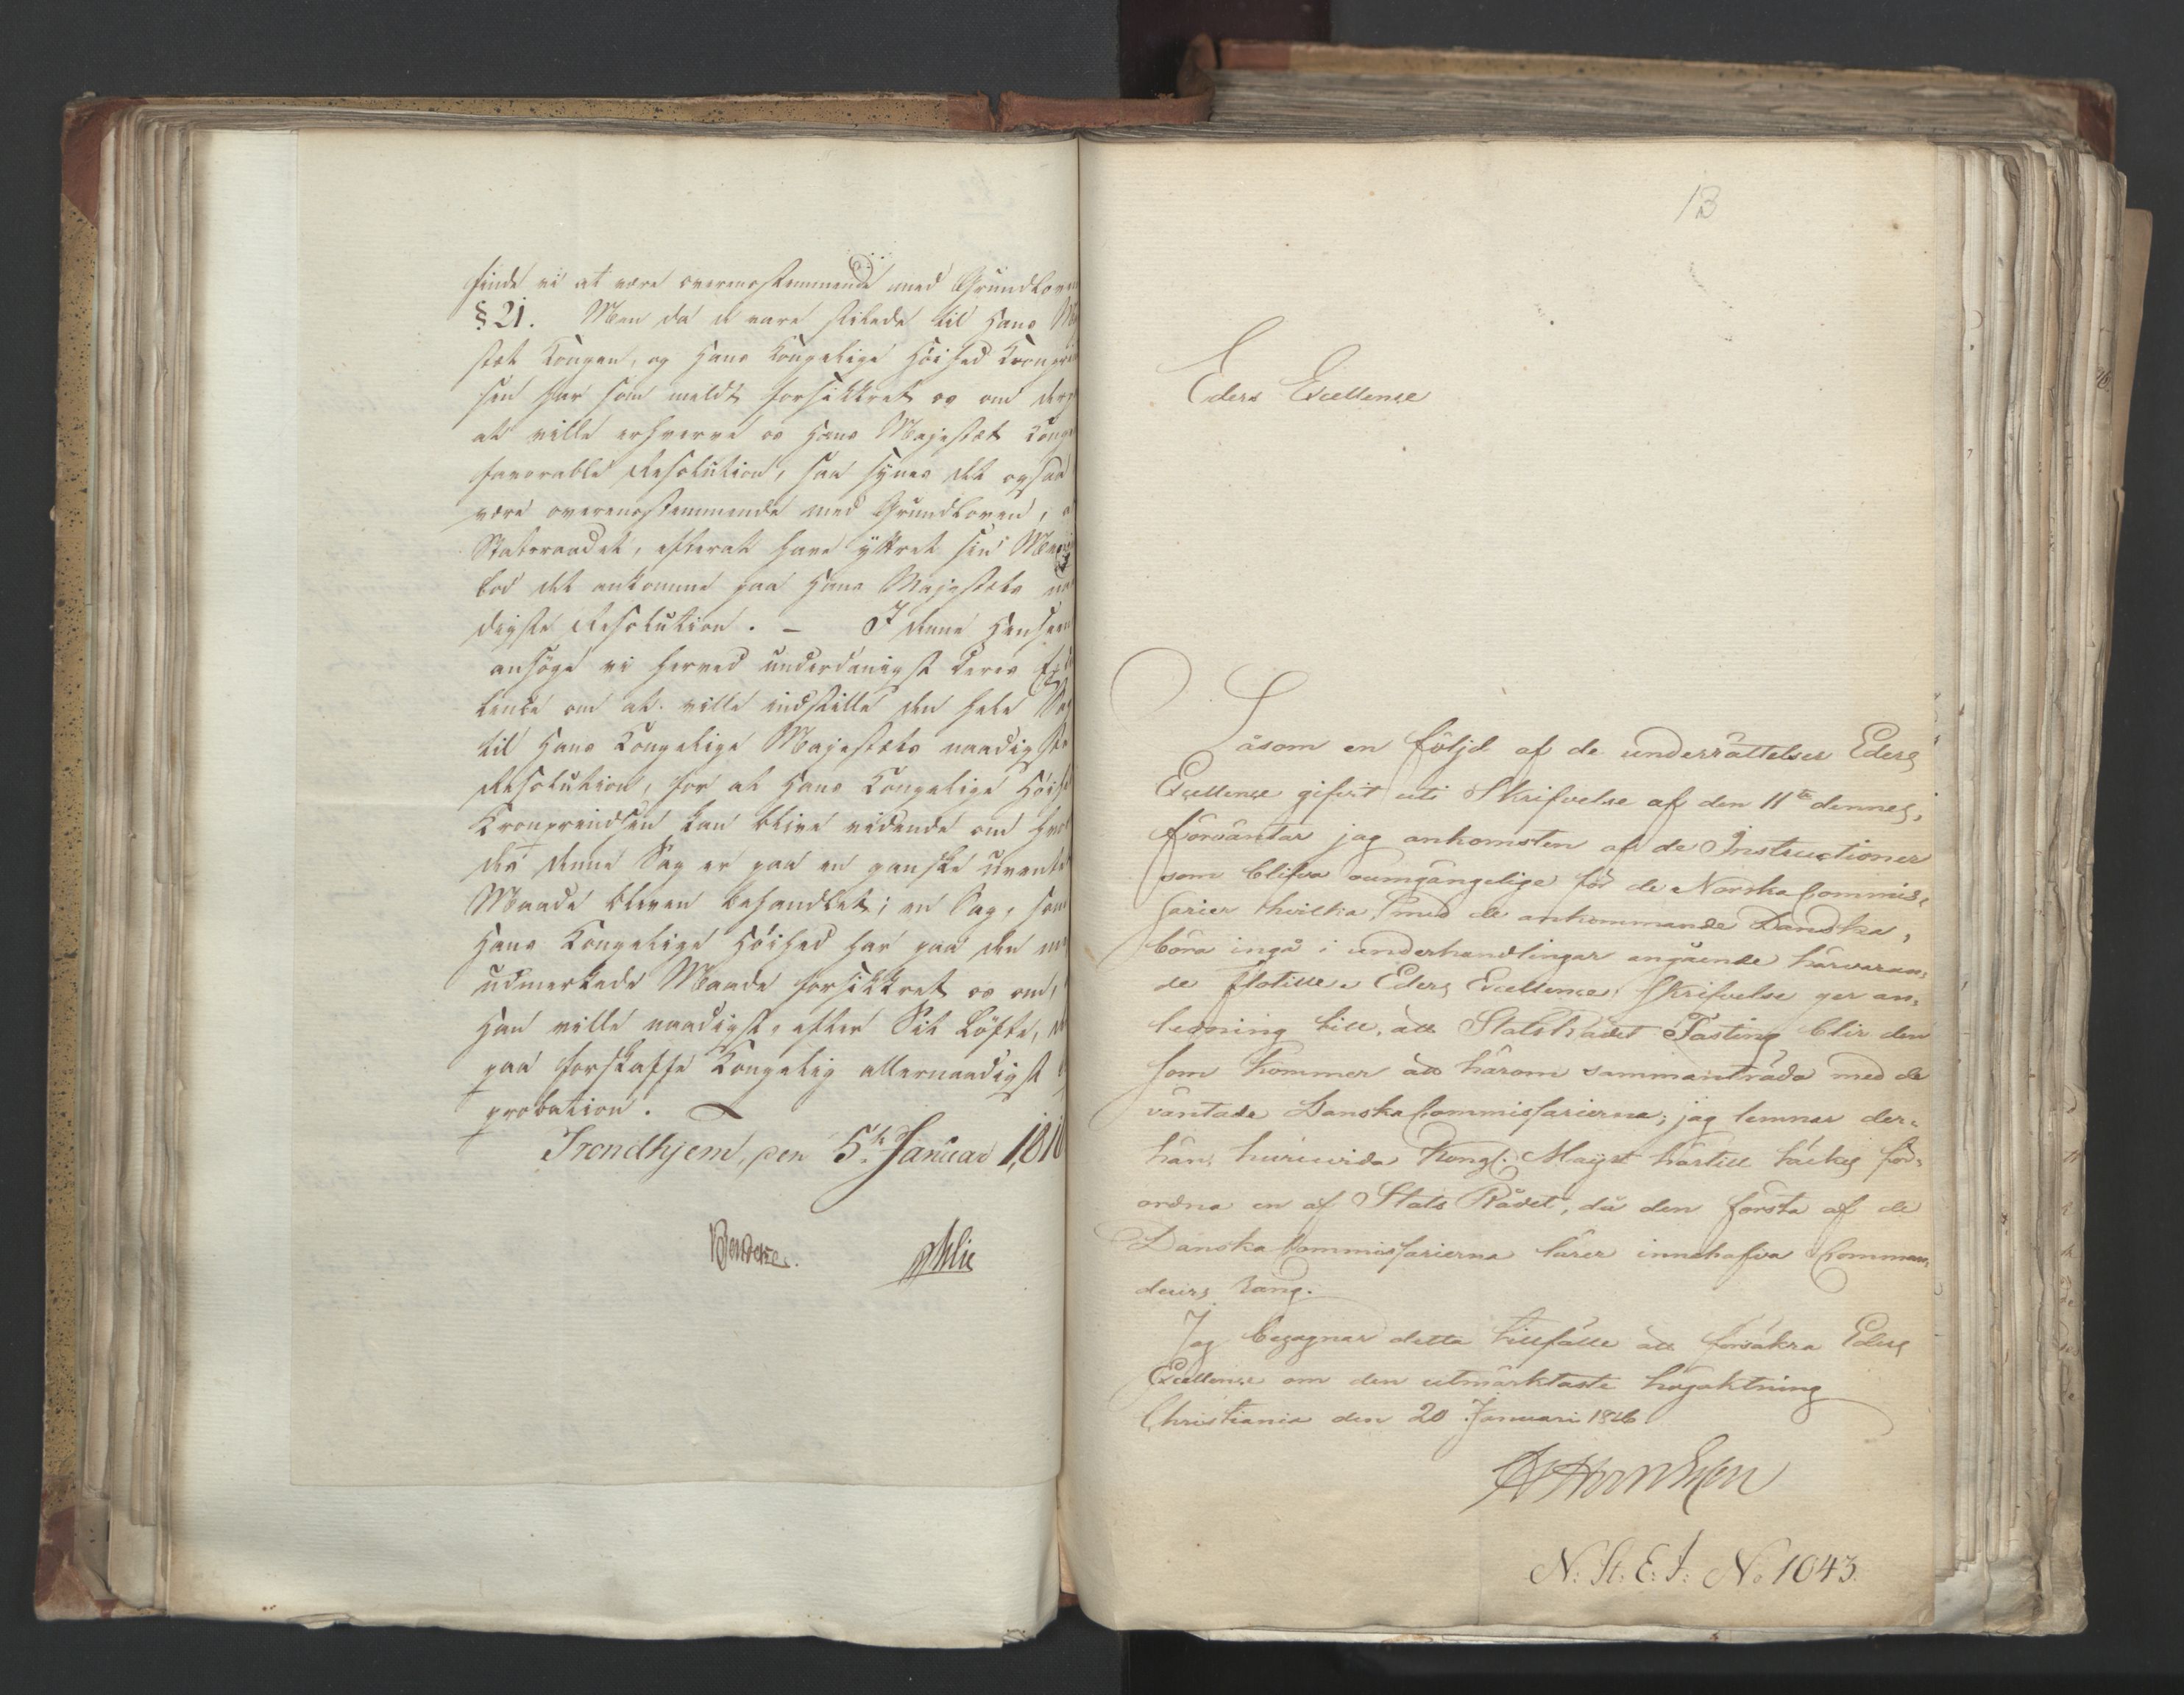 finde vi at være overensstemmende med Grundloven
§ 21. Men da de vare stilede til Hans Ma
stæt Kongen, og Hans Kongelige Höihed Kronprin
sen har som meldt forsikkret os om
at ville erhverve os Hans Majestæt Konge
favorable Resolution, saa synes det ogsaa
være overensstemmende med Grundloven,
Statsraadet, efterat have yttret sin Me
lod det ankomme paa Hans Majestæts na
digste Resolution. — I denne Henseen
ansöge vi herved underdanigst Deres Exe
lence om at ville indstille den hele Sag
til Hans Kongelige Majestæts naadigste
Resolution, for at Hans Kongelige Höih
Kronprindsen kan blive vidende om hvor
des denne Sag er paa en ganske uvente
Maade bleven behandlet; en Sag, som
Hans Kongelige Höihed har paa den m
udmerkede Maade forsikkret os om,
Han ville naadigst, efter Sit Löfte,
paa forskaffe Kongelig allernaadigst
probation.
Trondhjem, den 5te Januar 1816
13
Eders Excellence
Såsom en följd af de underrättelser Eders
Excellence gifvit uti Skrifvelse af den 11te dennes,
förväntar jag ankomsten af de Instructioner
som blifva oumgängelige för de Norska Commis,
sarier hvilka, med de ankommande Danska,
böra ingå i underhandlingar angående härvaran,
de flotille. Eders Excellences Skrifvelse ger an,
ledning till, att StatsRådet Fasting blir den
som kommer att härom sammanträda med de
väntade Danska Commissarierna; jag lemnar der,
hän, huruvida Kongl: Majst härtill täckes för,
ordna en af Stats Rådet, då den första af de
Danska Commissarierna lärer innehafva Comman,
deurs rang.
Jag begagnar detta tillfälle att försäkra Eders
Excellence om den utmärktaste högaktning
Christiania den 20 Januari 1816
N: St: E: J: No 1043.